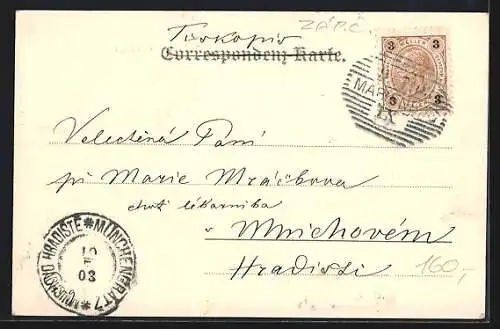 Tiskopis
ZÁP.Č.
Correspondenz-Karte.
3 3
3 3
MAR
IX
Veletěná Paní
pí Marie Mráčkova
choť lékarnika
v Mnichovém
Hradišti
MNICHOVO HRADIŠTĚ * MÜNCHENGRATZ *
10
03
160,-